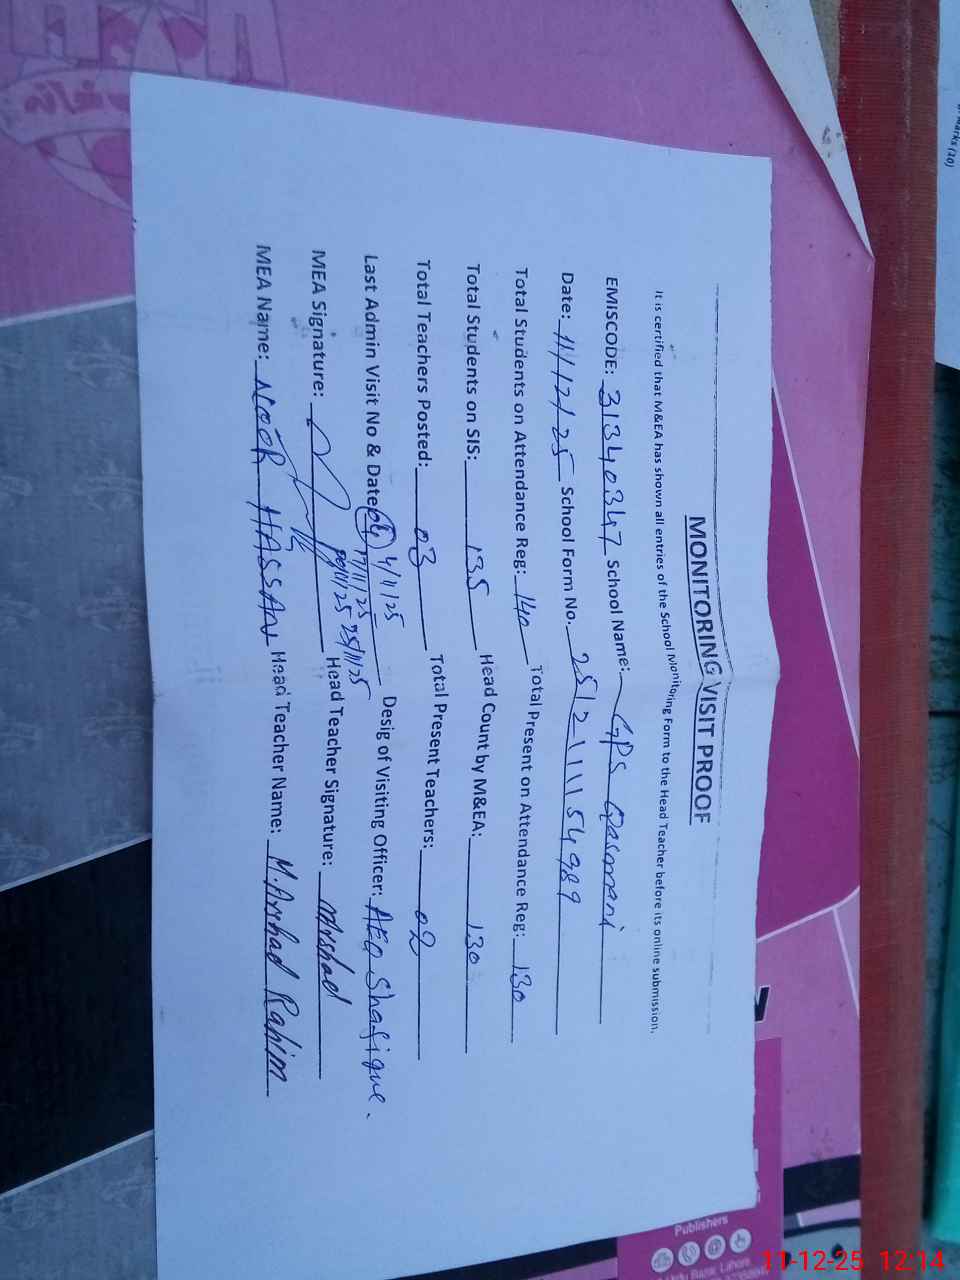 MONITORING VISIT PROOF
It is certified that M&EA has shown all entries of the School Monitoring Form to the Head Teacher before its online submission.
EMISCODE: 31340347 School Name: GPS Qasmani
Date: 11/12/25 School Form No. 251211154989
Total Students on Attendance Reg: 140 Total Present on Attendance Reg: 130
Total Students on SIS: 135 Head Count by M&EA: 130
Total Teachers Posted: 03 Total Present Teachers: 02
Last Admin Visit No & Date: 04 4/11/25 Desig of Visiting Officer: AEO Shafique.
17/11/25
25/11/25
MEA Signature: Head Teacher Signature: MArshad
MEA Name: NOOR HASSAN Head Teacher Name: M. Arshad Rahim
Marks (10)
Publishers
Urdu Bazar, Lahore
11-12-25 12:14